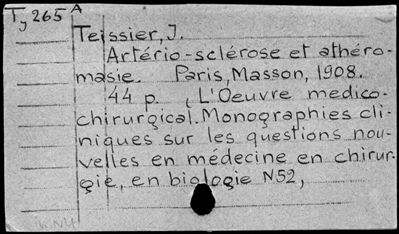 Ty 265 A
Teissier, J.
Artério-sclérose et athéro-
masie. Paris, Masson, 1908.
44 p. (L'Oeuvre medico-
chirurgical. Monographies cli-
niques sur les questions nou-
velles en médecine en chirur-
gie, en biologie N52,